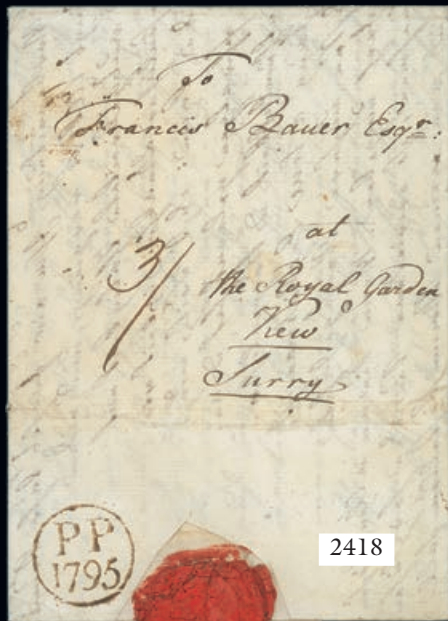 To
Francis Bauer Esqr:
at
3/
the Royal Garden
Kew
Surry
PP
1795
2418